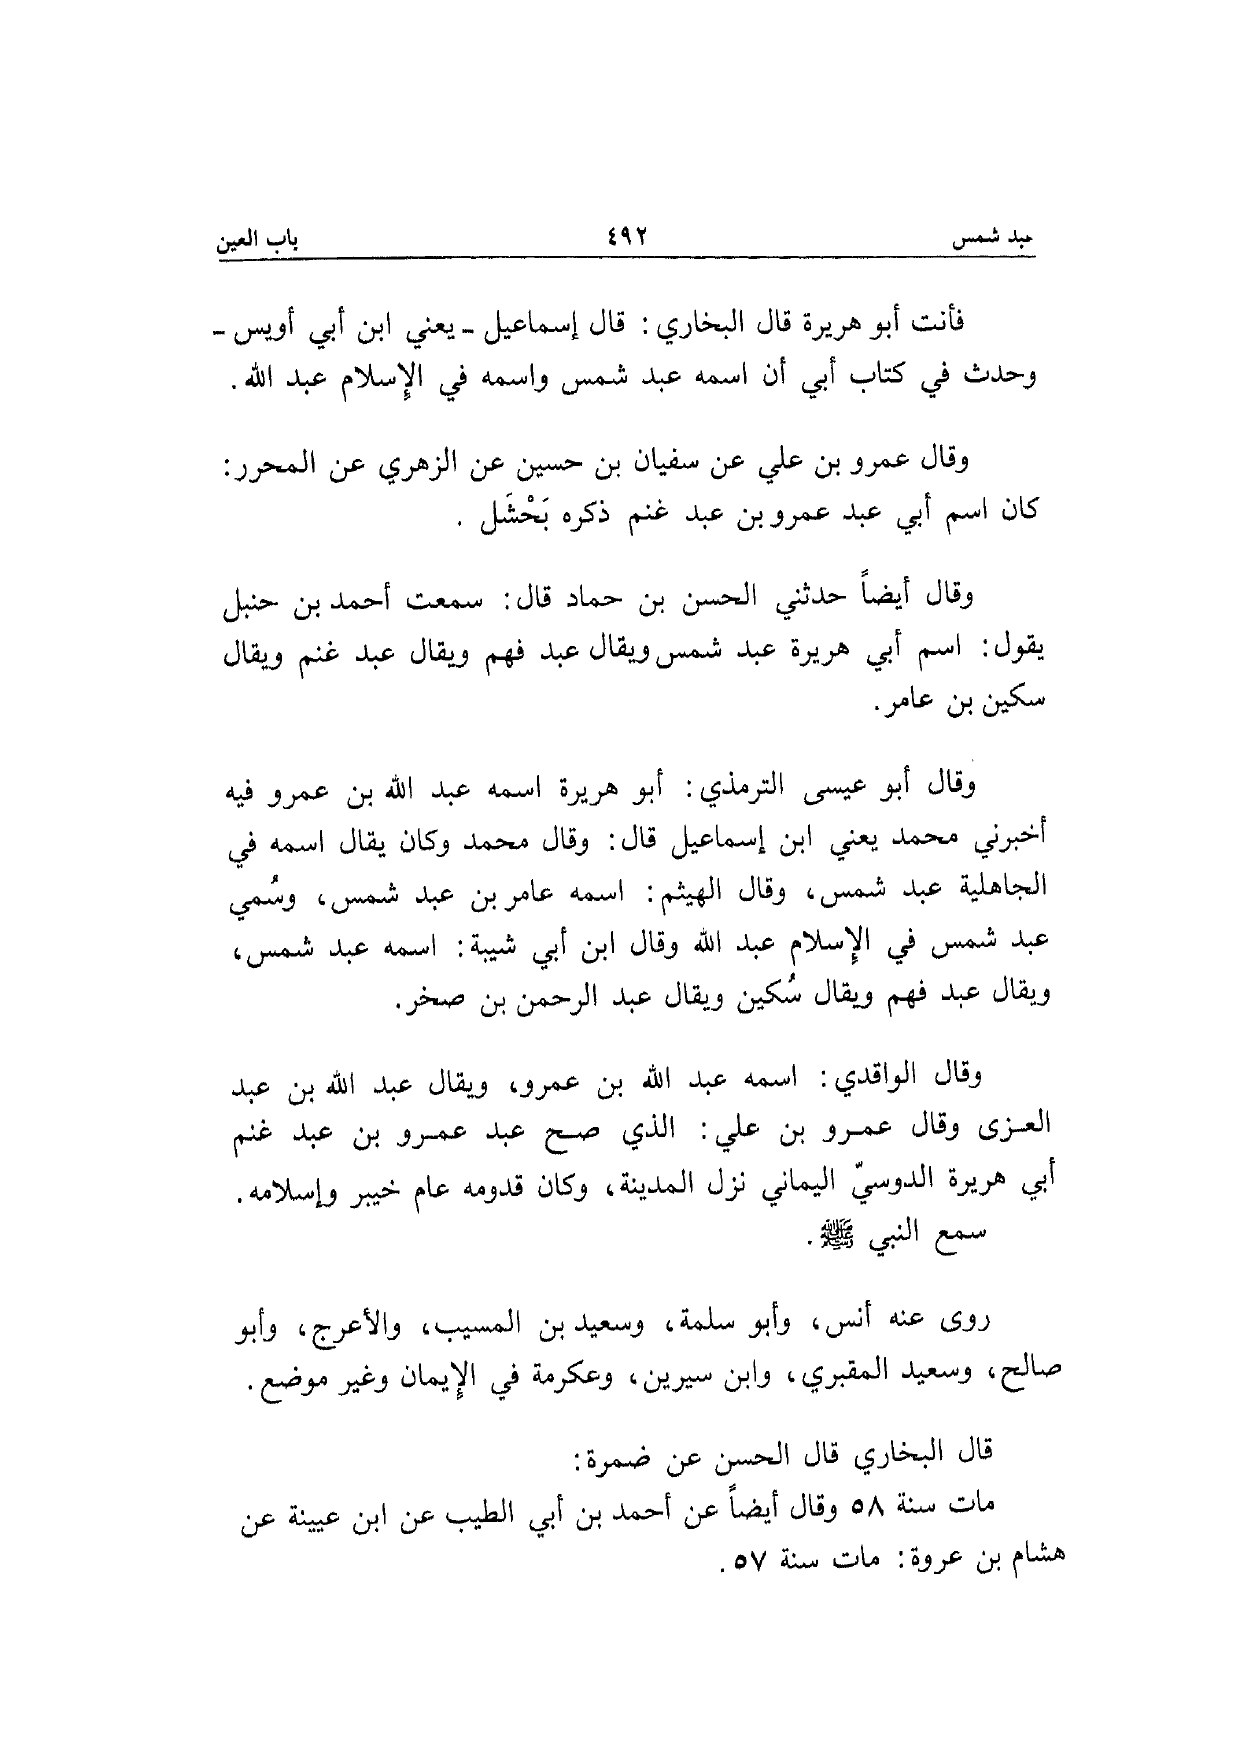 عبد شمس ٤٩٢ باب العين
فأنت أبو هريرة قال البخاري: قال إسماعيل ـ يعني ابن أبي أويس ـ
وحدث في كتاب أبي أن اسمه عبد شمس واسمه في الإسلام عبد الله.
وقال عمرو بن علي عن سفيان بن حسين عن الزهري عن المحرر:
كان اسم أبي عبد عمرو بن عبد غنم ذكره بَحْشَل .
وقال أيضاً حدثني الحسن بن حماد قال: سمعت أحمد بن حنبل
يقول: اسم أبي هريرة عبد شمس ويقال عبد فهم ويقال عبد غنم ويقال
سكين بن عامر.
وقال أبو عيسى الترمذي: أبو هريرة اسمه عبد الله بن عمرو فيه
أخبرني محمد يعني ابن إسماعيل قال: وقال محمد وكان يقال اسمه في
الجاهلية عبد شمس، وقال الهيثم: اسمه عامر بن عبد شمس، وسُمي
عبد شمس في الإسلام عبد الله وقال ابن أبي شيبة: اسمه عبد شمس،
ويقال عبد فهم ويقال سُكين ويقال عبد الرحمن بن صخر.
وقال الواقدي: اسمه عبد الله بن عمرو، ويقال عبد الله بن عبد
العزى وقال عمرو بن علي: الذي صح عبد عمرو بن عبد غنم
أبي هريرة الدوسيّ اليماني نزل المدينة، وكان قدومه عام خيبر وإسلامه.
سمع النبي ﷺ.
روى عنه أنس، وأبو سلمة، وسعيد بن المسيب، والأعرج، وأبو
صالح، وسعيد المقبري، وابن سيرين، وعكرمة في الإيمان وغير موضع.
قال البخاري قال الحسن عن ضمرة:
مات سنة ٥٨ وقال أيضاً عن أحمد بن أبي الطيب عن ابن عيينة عن
هشام بن عروة: مات سنة ٥٧.